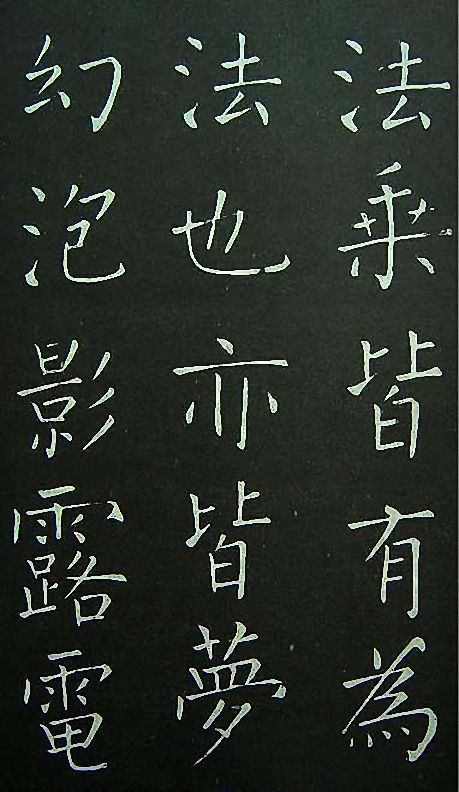 法乗皆有為
法也亦皆夢
幻泡影露電